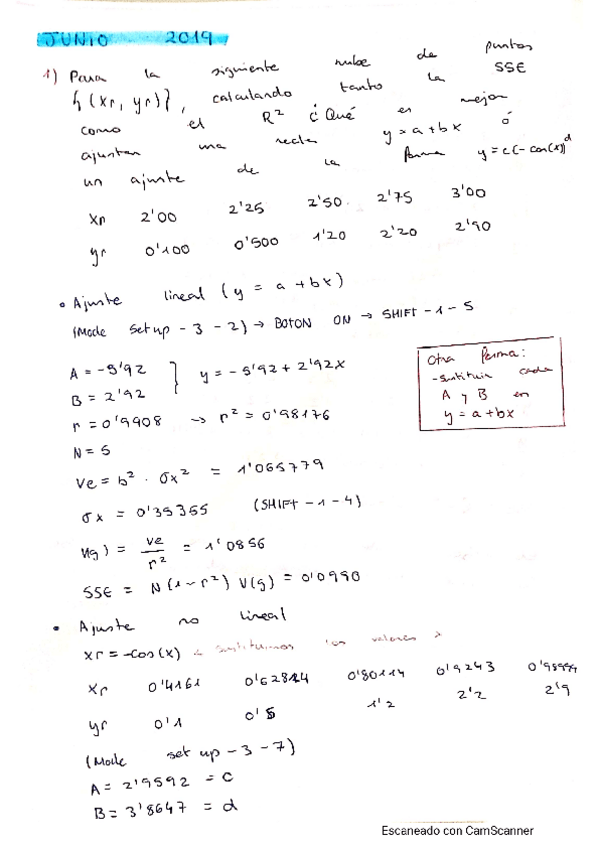 JUNIO 2019
1) Para la siguiente nube de puntos
{(xr, yr)}, calculando tanto la SSE
como el R² ¿Qué es mejor
ajustar una recta y=a+bx ó
un ajuste de la forma y=c(-cos(x))^d
xr 2'00 2'25 2'50 2'75 3'00
yr 0'100 0'500 1'20 2'20 2'90
• Ajuste lineal (y = a + bx)
(Mode set up - 3 - 2) → BOTON ON → SHIFT - 1 - 5
A = -5'92
B = 2'92
y = -5'92 + 2'92x
r = 0'9908 → r² = 0'98176
N = 5
Ve = b² · σx² = 1'065779
σx = 0'35355 (SHIFT - 1 - 4)
V(y) = ve/r² = 1'0856
SSE = N(1-r²) V(y) = 0'0990
Otra forma:
- sustituir cada
A y B en
y = a+bx
• Ajuste no lineal
xr = -cos(x) sustituimos los valores
xr 0'4161 0'62814 0'80114 0'9243 0'98999
yr 0'1 0'5 1'2 2'2 2'9
(Mode set up - 3 - 7)
A = 2'9592 = c
B = 3'8647 = d
Escaneado con CamScanner